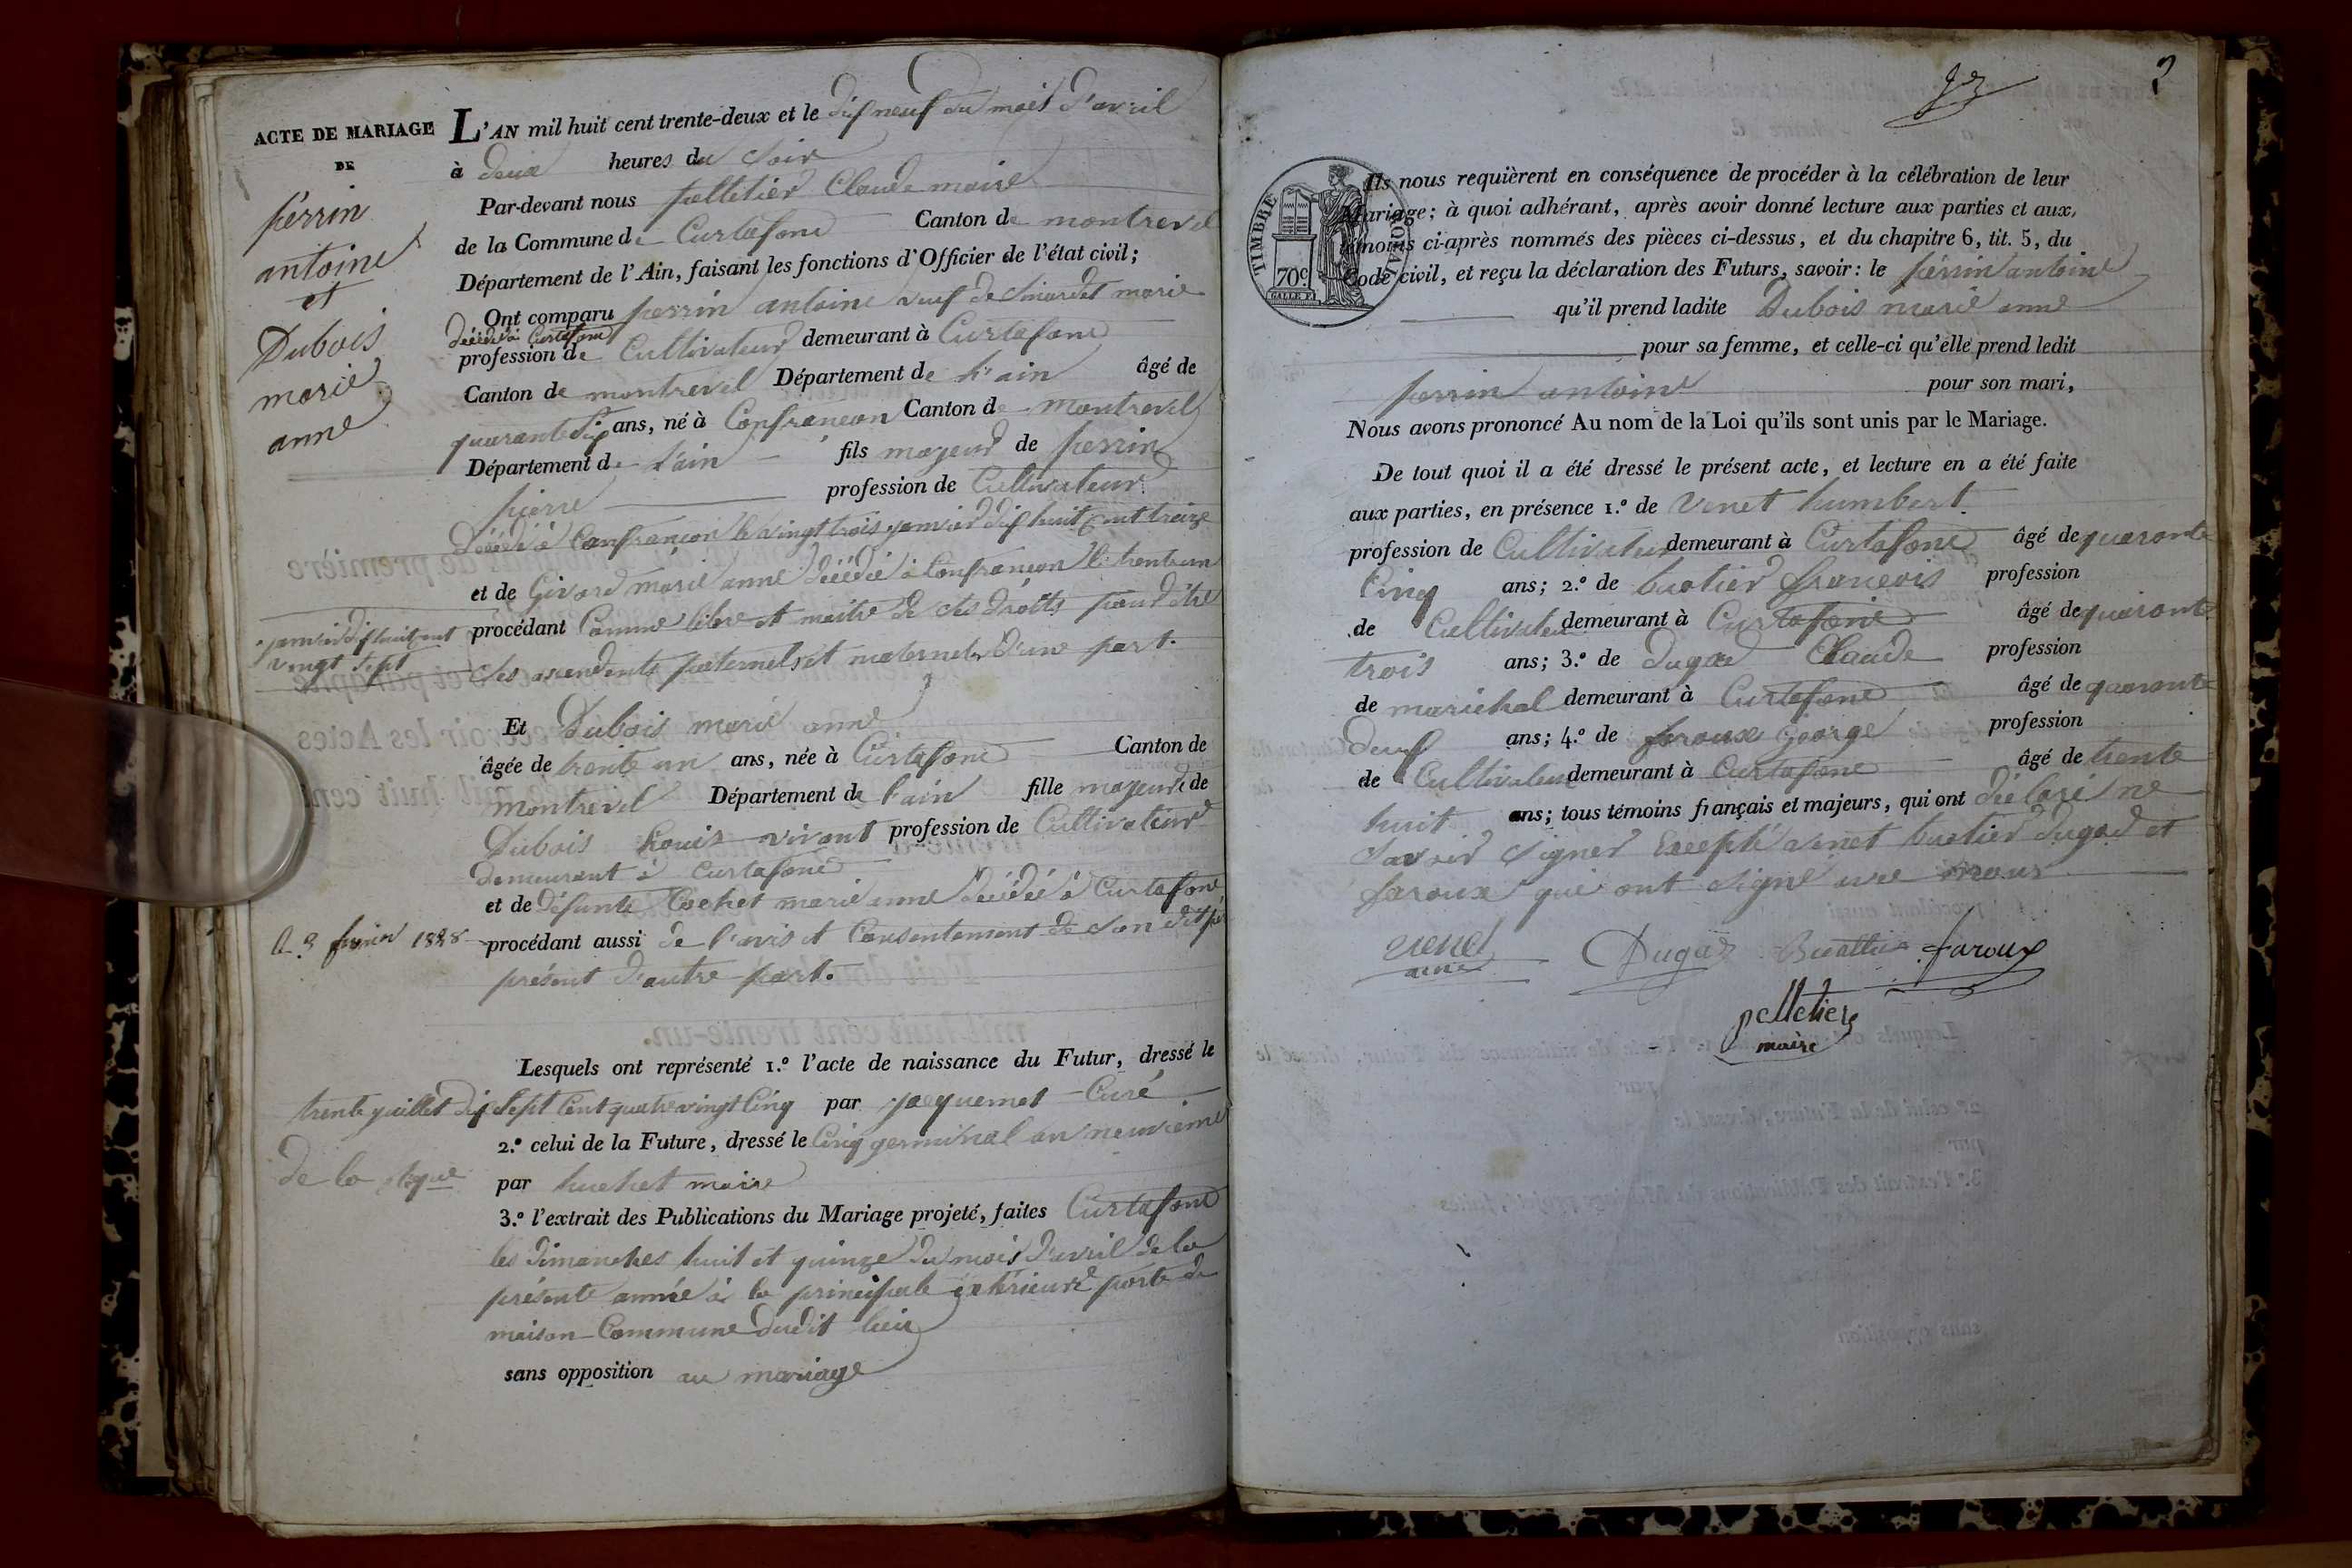 ACTE DE MARIAGE
DE
perrin
antoine
et
Dubois
marie
anne
L'AN mil huit cent trente-deux et le dix neuf du mois d'avril
à deux heures du soir
Par-devant nous pelletier Claude maire
de la Commune de Curtafond Canton de montrevel
Département de l'Ain, faisant les fonctions d'Officier de l'état civil;
Ont comparu perrin antoine veuf de marie
décédée à Curtafond
profession de Cultivateur demeurant à Curtafond
Canton de montrevel Département de l'ain âgé de
quarante six ans, né à Confrancon Canton de Montrevel
Département de l'ain fils majeur de perrin
pierre profession de Cultivateur
décédé à Confrancon le vingt trois janvier dix huit cent treize
et de Girard marie anne décédée à Confrancon le trente un
janvier dix huit cent
vingt sept
procédant Comme libre et maitre de ses droits
ses ascendents paternels et maternels d'une part.
Et Dubois marie anne
âgée de trente un ans, née à Curtafond Canton de
montrevel Département de l'ain fille majeure de
Dubois Louis vivant profession de Cultivateur
demeurant à Curtafond
et de défunte Cochet marie anne décédée à Curtafond
1828
procédant aussi de l'avis et Consentement de son dit père
présent d'autre part.
Lesquels ont représenté 1.º l'acte de naissance du Futur, dressé le
trente juillet dix sept Cent quatre vingt Cinq par jacquemet Curé
2.º celui de la Future, dressé le Cinq germinal an neuvieme
de la
par huchet maire
3.º l'extrait des Publications du Mariage projeté, faites Curtafond
les dimanches huit et quinze du mois d'avril de la
présente année à la principale extérieure porte de
maison Commune dudit lieu
sans opposition au mariage
TIMBRE ROYAL
70c.
Ils nous requièrent en conséquence de procéder à la célébration de leur
Mariage; à quoi adhérant, après avoir donné lecture aux parties et aux
témoins ci-après nommés des pièces ci-dessus, et du chapitre 6, tit. 5, du
Code civil, et reçu la déclaration des Futurs, savoir: le perrin antoine
qu'il prend ladite Dubois marie anne
pour sa femme, et celle-ci qu'elle prend ledit
perrin antoine pour son mari,
Nous avons prononcé Au nom de la Loi qu'ils sont unis par le Mariage.
De tout quoi il a été dressé le présent acte, et lecture en a été faite
aux parties, en présence 1.º de venet humbert
profession de Cultivateur demeurant à Curtafond âgé de quarante
Cinq ans; 2.º de buatier francois profession
de Cultivateur demeurant à Curtafond âgé de quarante
trois ans; 3.º de dugad Claude profession
de maréchal demeurant à Curtafond âgé de quarante
deux ans; 4.º de faroux george profession
de Cultivateur demeurant à Curtafond âgé de trente
huit ans; tous témoins français et majeurs, qui ont déclaré ne
savoir signer Excepté venet buatier dugad et
faroux qui ont signé avec nous
venet
Dugad Buattier faroux
pelletier
maire